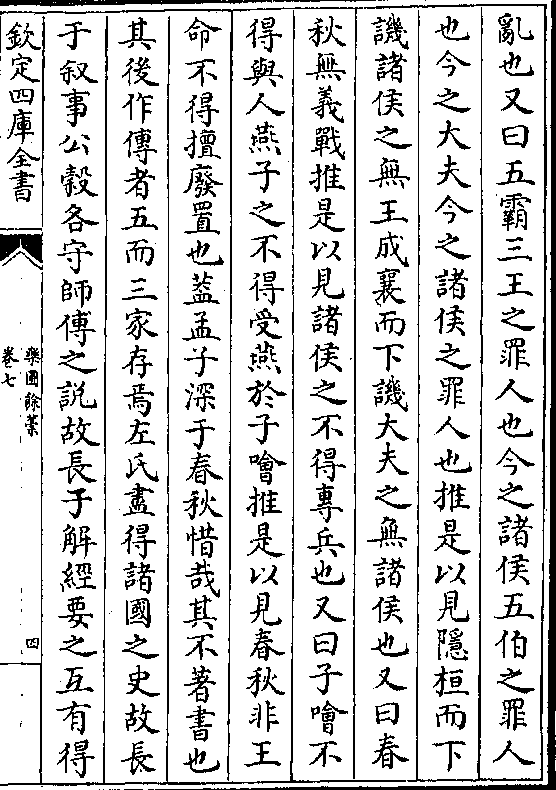 亂也又曰五霸三王之罪人也今之諸侯五伯之罪人
也今之大夫今之諸侯之罪人也推是以見隱桓而下
譏諸侯之無王成襄而下譏大夫之無諸侯也又曰春
秋無義戰推是以見諸侯之不得專兵也又曰子噲不
得與人燕子之不得受燕於子噲推是以見春秋非王
命不得擅廢置也葢孟子深于春秋惜哉其不著書也
其後作傳者五而三家存焉左氏盡得諸國之史故長
于叙事公縠各守師傳之說故長于解經要之互有得
欽定四庫全書
樂圃餘藁
卷七
四